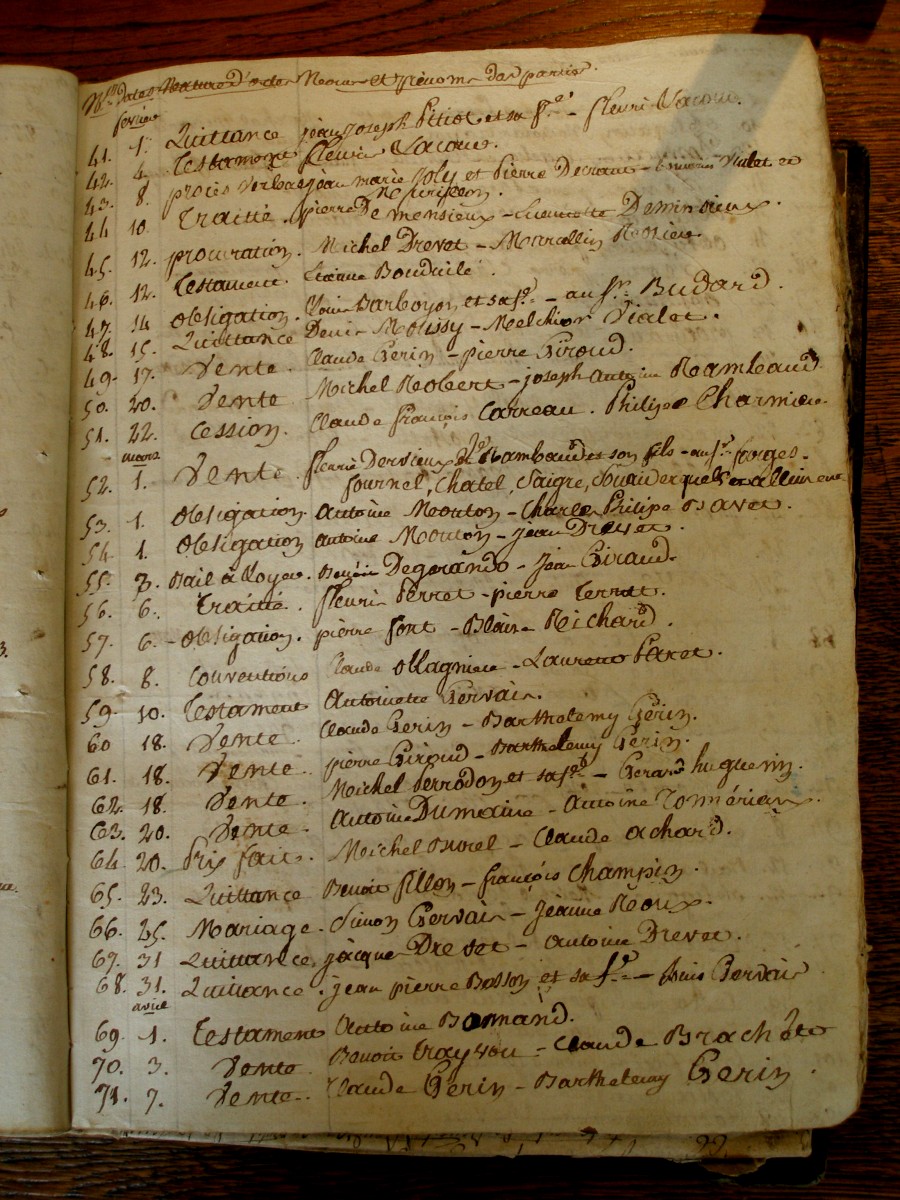 Nature d'actes Noms et prénoms des parties.
février
41. 1. Quittance jean joseph Pitiot et sa fe. - fleuri Vacone.
42. 4. Testament fleuri Vacone.
43. 8. procès verbal jean marie Joly et Pierre - Vialet et
44 10. Traitté. pierre Demensieux - Demensieux.
45. 12. procuration. Michel Drevet - Marcellin
46. 12. Testament.
47. 14 obligation. et sa fe. - au sr. Budard.
48. 15. Quittance Denis Moussy - Melchior Vialet.
49. 17. Vente. Claude Gerin - pierre Giroud.
50. 20. Vente Michel Robert - joseph Antoine Rambaud
51. 22. Cession. Claude françois Carreau. Philipe Charmieu
mars
52. 1. Vente fleurie Dervieux Rambaud et son fils - au sr. forges.
fournel, Chatel, Saigre,
53. 1. obligation. Antoine Mouton - Charles Philipe Bavet.
54 1. obligation Antoine Mouton - jean Drevet.
55. 3. Bail à loyer. Benoit Degerando - Jean Giraud.
56. 6. Traitté. fleuri Perret - pierre Terrat.
57. 6. - obligation. pierre font - Blaise Richard.
58. 8. Conventions Claude Ollagnieu - Laurent Paret.
59. 10. Testament Antoinette Gervais.
60 18. Vente. Claude Gerin - Barthelemy Gerin.
61. 18. Vente. pierre Giroud - Barthelemy Gerin.
62. 18. Vente. Michel Perrodon et sa fe. - Gerard huguenin.
63. 20. Vente. Antoine Dumaine - Antoine
64 20. Prix fait. Michel Burel - Claude achard.
65. 23. Quittance Benoit fillon - françois Champin.
66. 25. Mariage. Simon Gervais - Jeanne Roux.
67. 31 Quittance. jacque Drevet - Antoine Drevet.
68. 31. Quittance. jean pierre Bosson et sa fe. - Louis Gervais
avril
69. 1. Testament Antoine Bonnand.
70. 3. Vente Benoit Trayvou - Claude Brachete
71. 7. Vente. Claude Gerin - Barthelemy Gerin.